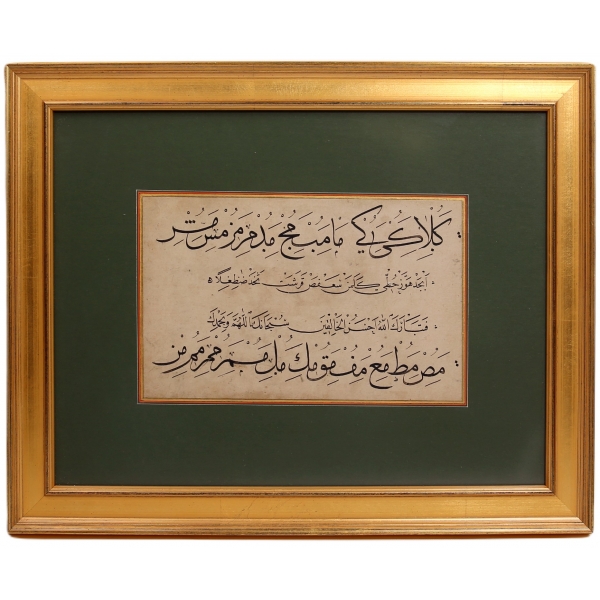 كلا كى كي ما مب مج مد مر مز مس مش
ابجد هوز حطي كلمن سعفص قرشت ثخذ ضظغلا
فتبارك الله احسن الخالقين سبحانك اللهم وبحمدك
مص مط مع مف مق مك مل